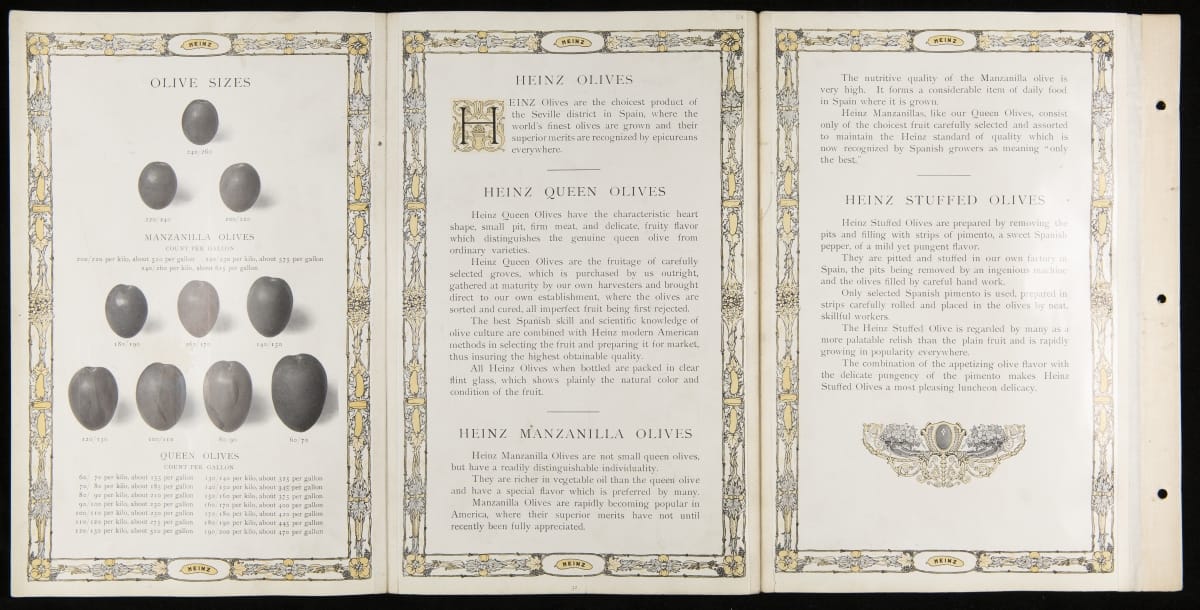 HEINZ
OLIVE SIZES
240/260
220/240 200/220
MANZANILLA OLIVES
COUNT PER GALLON
200/220 per kilo, about 520 per gallon 220/240 per kilo, about 575 per gallon
240/260 per kilo, about 625 per gallon
180/190 160/170 140/150
120/130 100/110 80/90 60/70
QUEEN OLIVES
COUNT PER GALLON
60/ 70 per kilo, about 155 per gallon 130/140 per kilo, about 325 per gallon
70/ 80 per kilo, about 185 per gallon 140/150 per kilo, about 345 per gallon
80/ 90 per kilo, about 210 per gallon 150/160 per kilo, about 375 per gallon
90/100 per kilo, about 230 per gallon 160/170 per kilo, about 400 per gallon
100/110 per kilo, about 250 per gallon 170/180 per kilo, about 420 per gallon
110/120 per kilo, about 275 per gallon 180/190 per kilo, about 445 per gallon
120/130 per kilo, about 300 per gallon 190/200 per kilo, about 470 per gallon
HEINZ
HEINZ
HEINZ OLIVES
HEINZ Olives are the choicest product of
the Seville district in Spain, where the
world's finest olives are grown and their
superior merits are recognized by epicureans
everywhere.
HEINZ QUEEN OLIVES
Heinz Queen Olives have the characteristic heart
shape, small pit, firm meat, and delicate, fruity flavor
which distinguishes the genuine queen olive from
ordinary varieties.
Heinz Queen Olives are the fruitage of carefully
selected groves, which is purchased by us outright,
gathered at maturity by our own harvesters and brought
direct to our own establishment, where the olives are
sorted and cured, all imperfect fruit being first rejected.
The best Spanish skill and scientific knowledge of
olive culture are combined with Heinz modern American
methods in selecting the fruit and preparing it for market,
thus insuring the highest obtainable quality.
All Heinz Olives when bottled are packed in clear
flint glass, which shows plainly the natural color and
condition of the fruit.
HEINZ MANZANILLA OLIVES
Heinz Manzanilla Olives are not small queen olives,
but have a readily distinguishable individuality.
They are richer in vegetable oil than the queen olive
and have a special flavor which is preferred by many.
Manzanilla Olives are rapidly becoming popular in
America, where their superior merits have not until
recently been fully appreciated.
HEINZ
HEINZ
The nutritive quality of the Manzanilla olive is
very high. It forms a considerable item of daily food
in Spain where it is grown.
Heinz Manzanillas, like our Queen Olives, consist
only of the choicest fruit carefully selected and assorted
to maintain the Heinz standard of quality which is
now recognized by Spanish growers as meaning "only
the best."
HEINZ STUFFED OLIVES
Heinz Stuffed Olives are prepared by removing the
pits and filling with strips of pimento, a sweet Spanish
pepper, of a mild yet pungent flavor.
They are pitted and stuffed in our own factory in
Spain, the pits being removed by an ingenious machine
and the olives filled by careful hand work.
Only selected Spanish pimento is used, prepared in
strips carefully rolled and placed in the olives by neat,
skillful workers.
The Heinz Stuffed Olive is regarded by many as a
more palatable relish than the plain fruit and is rapidly
growing in popularity everywhere.
The combination of the appetizing olive flavor with
the delicate pungency of the pimento makes Heinz
Stuffed Olives a most pleasing luncheon delicacy.
HEINZ